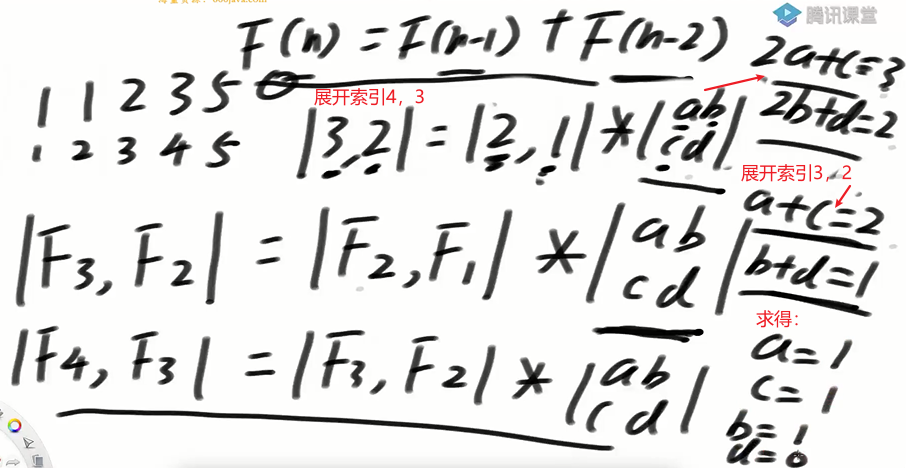 腾讯课堂
F(n) = F(n-1) + F(n-2)
1 1 2 3 5
1 2 3 4 5
展开索引4，3
|3,2| = |2,1| * |ab
cd|
2a+c=3
2b+d=2
展开索引3，2
a+c=2
b+d=1
|F3, F2| = |F2, F1| * |ab
cd|
|F4, F3| = |F3, F2| * |ab
cd|
求得：
a=1
c=1
b=1
d=0